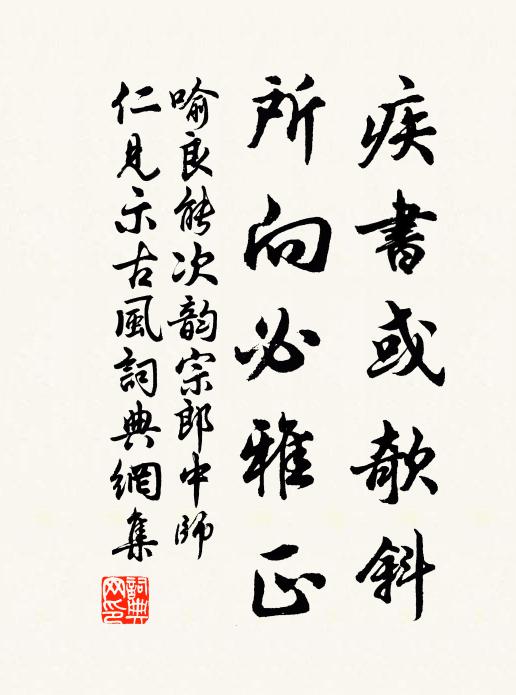 疾書或欹斜
所向必雅正
喻良能次韵宗郎中師
仁見示古風詞典網集
詞典網印